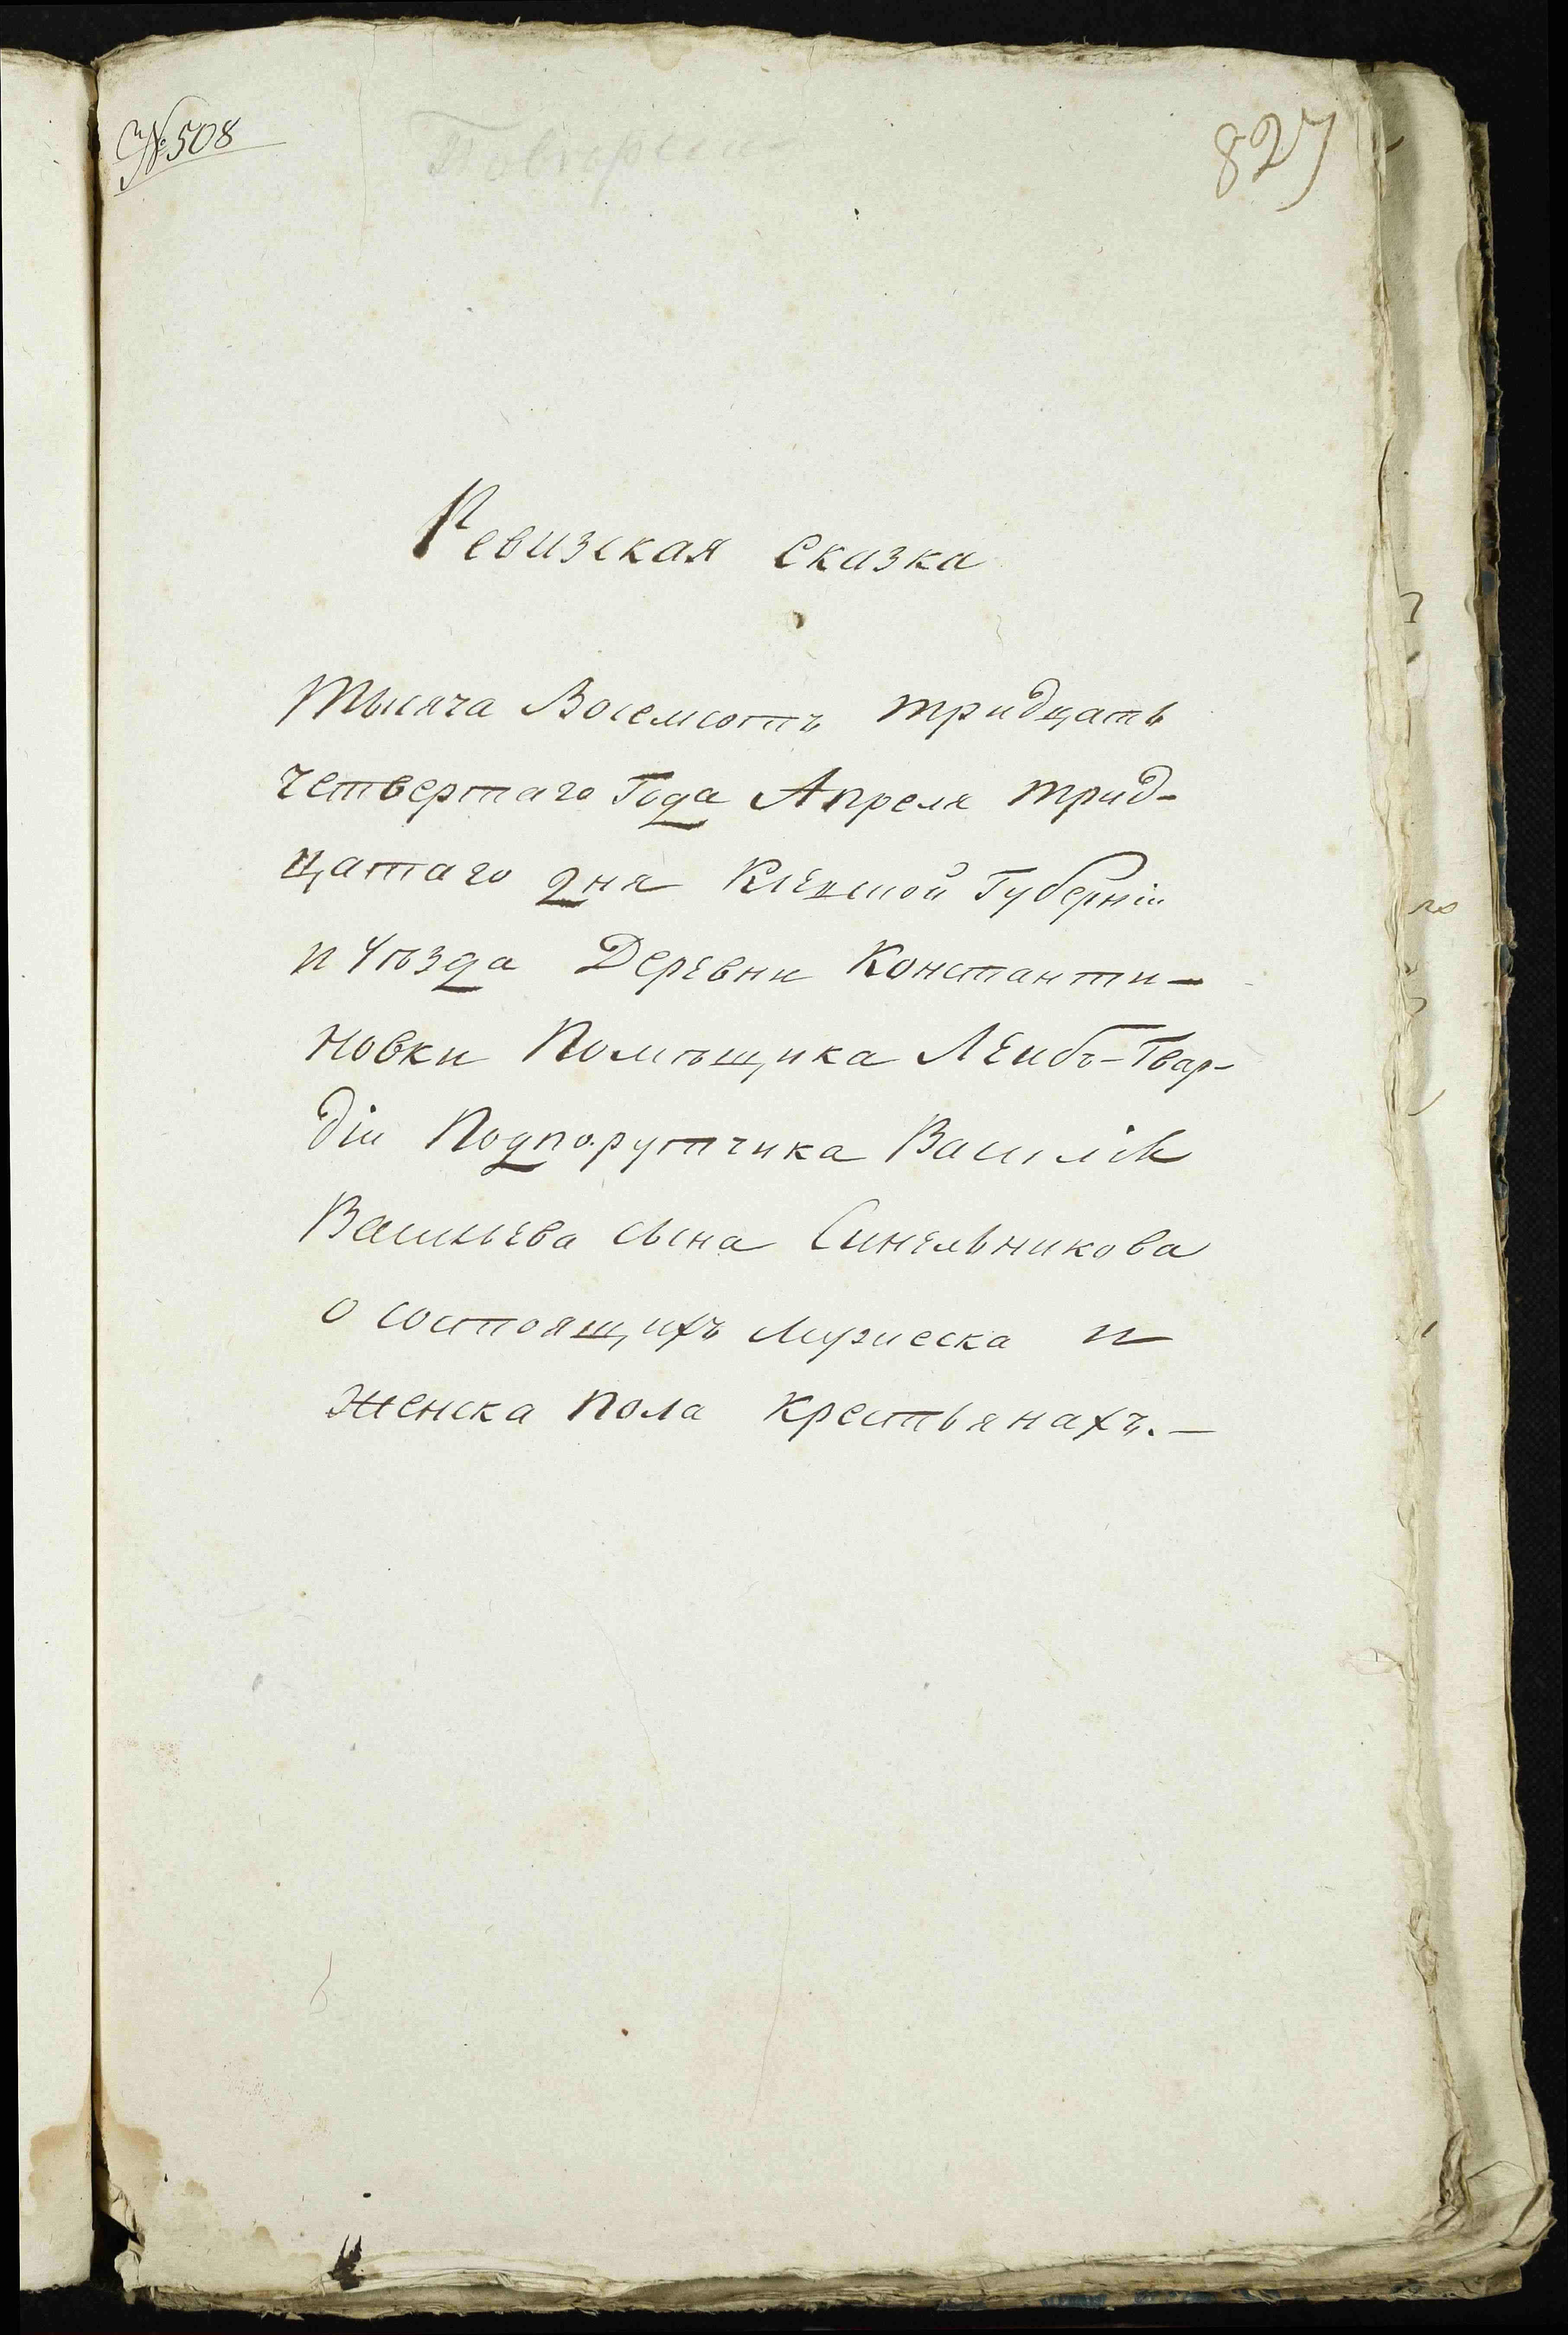 № 508
827
Ревизская сказка
Тысяча Восемсотъ тридцать
четвертаго Года Апреля трид-
цатаго дня Кіевской Губерніи
и Уѣзда Деревни Константи-
новки Помѣщика Леибъ-Гвар-
діи Подпорутчика Василія
Васильева сына Синельникова
о состоящихъ мужеска и
женска пола крестьянахъ.-